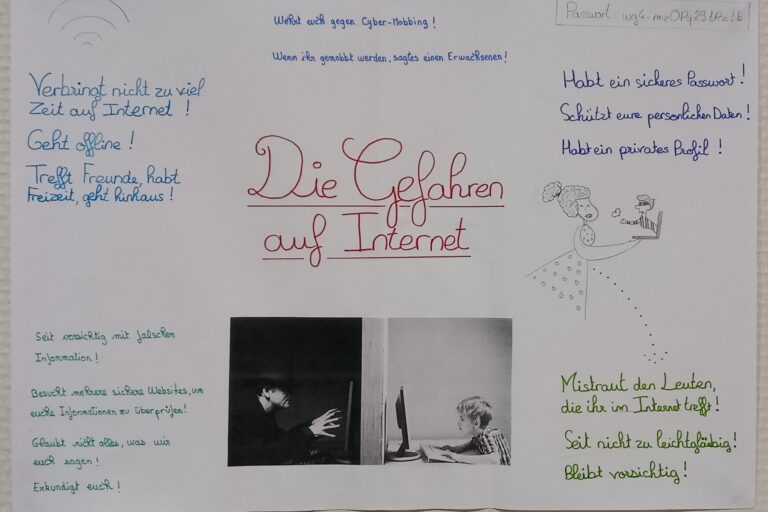 Wehrt euch gegen Cyber-Mobbing !
Wenn ihr gemobbt werden, sagtes einen Erwachsenen!
Passwort:
Verbringt nicht zu viel
Zeit auf Internet !
Geht offline !
Trefft Freunde, habt
Freizeit, geht hinhaus !
Habt ein sicheres Passwort !
Schützt eure persönlichen Daten !
Habt ein privates Profil !
Die Gefahren
auf Internet
Seit vorsichtig mit falschen
Information !
Besucht mehrere sichere Websites, um
euche Informationen zu überprüfen!
Glaubt nicht alles, was wir
euch sagen !
Erkundigt euch !
Mistraut den Leuten,
die ihr im Internet trefft !
Seit nicht zu leichtgläubig !
Bleibt vorsichtig !